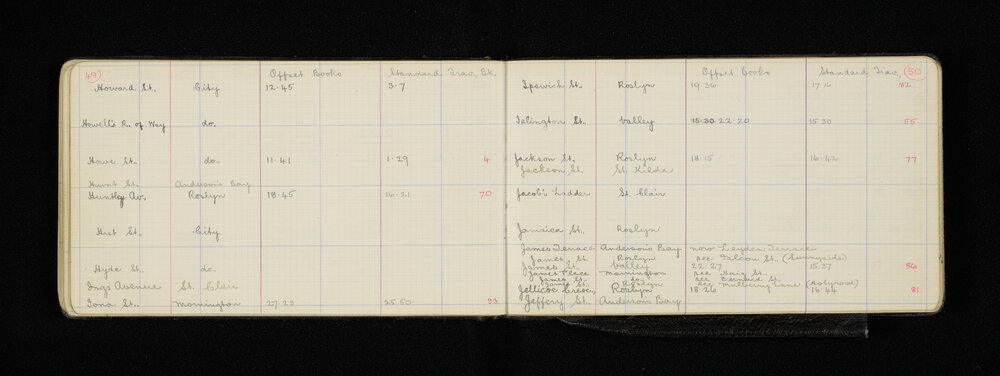 49 Offset Books Standard Trav. Bk.
Howard St. City 12.45 3.7
Howell's R. of Way do.
Howe St. do. 11.41 1.29 4
Hunt St. Anderson's Bay
Huntley Av. Roslyn 18.45 16.21 70
Hut St. City
Hyde St. do.
Ings Avenue St. Clair
Iona St. Mornington 27.23 25.50 93
Offset Books Standard Trav. 50
Ipswich St. Roslyn 19.36 17.16 82
Islington St. Valley 15.30 22.20 15.30 55
Jackson St. Roslyn 18.15 16.42 77
Jackson St. St. Kilda
Jacob's Ladder St. Clair
Jamaica St. Roslyn
James Terrace Anderson's Bay now Leyden Terrace
James St. Roslyn see Falcon St. (Sunnyside)
James St. Valley 22.27 15.37 56
James Place Mornington see Haig St.
James St. do. see Bernard St.
James St. Roslyn see Mulberry Lane (Holyrood)
Jellicoe Cresc. Roslyn 18.26 16.44 81
Jeffery St. Anderson's Bay